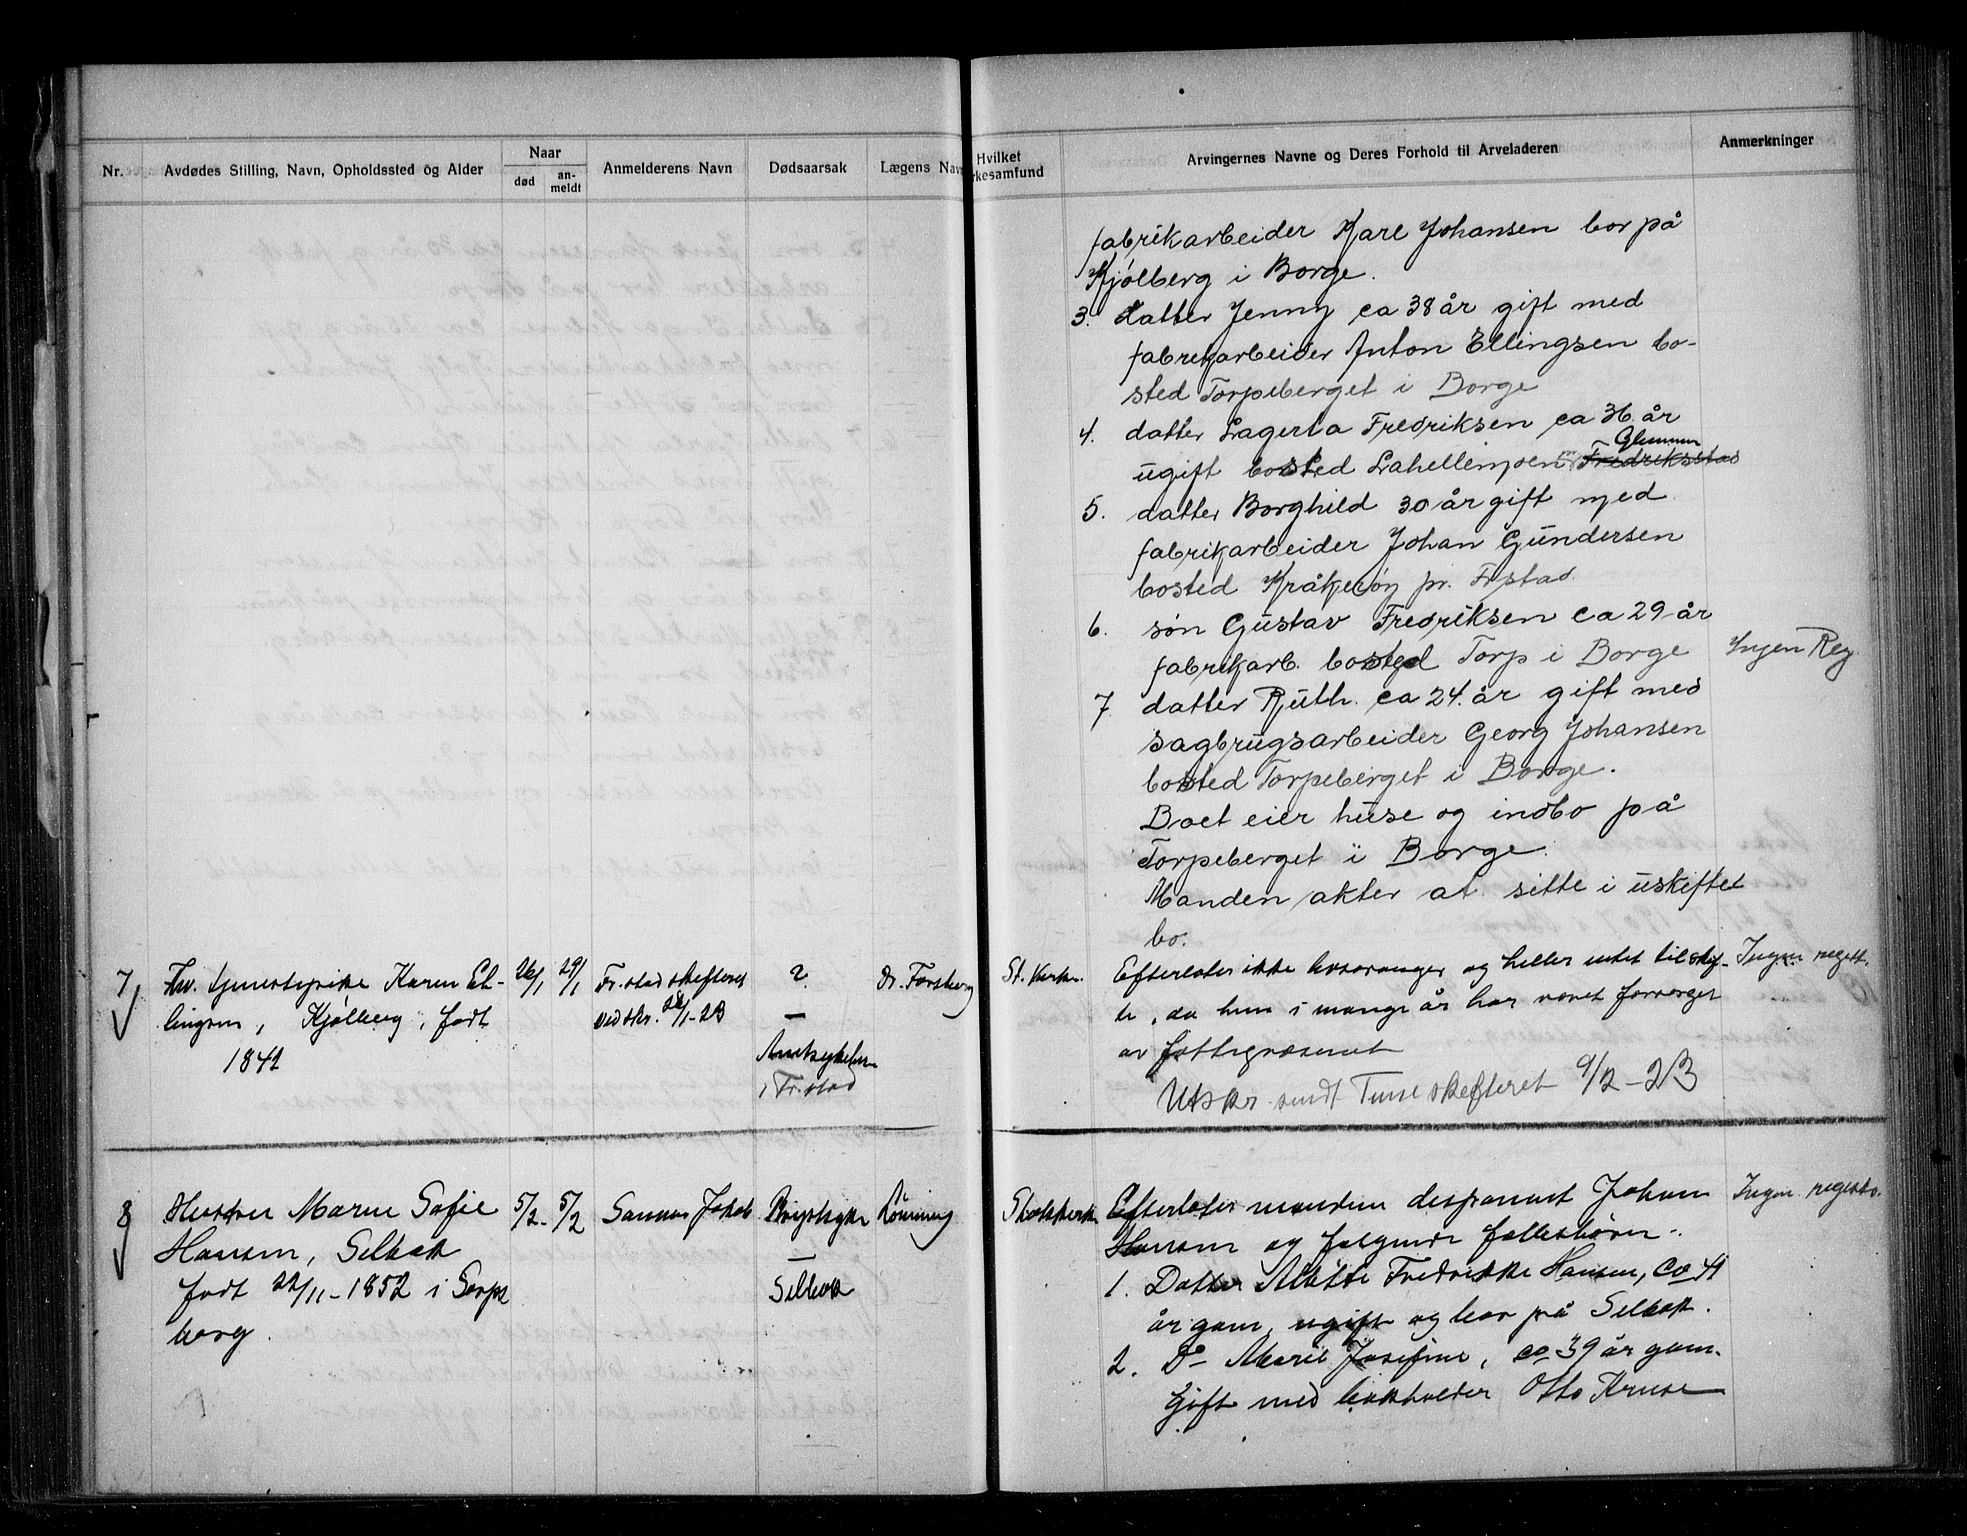 Nr.
Avdødes Stilling, Navn, Opholdssted og Alder
Naar
død
an-
meldt
Anmelderens Navn
Dødsaarsak
Lægens Nav
Hvilket
rkesamfund
Arvingernes Navne og Deres Forhold til Arveladeren
Anmerkninger
fabrikarbeider Karl Johansen bor på
Kjølberg i Borge.
3. datter Jenny ca 38 år gift med
fabrikarbeider Anton Ellingsen bo-
sted Torpeberget i Borge
4. datter Lagerta Fredriksen ca 36 år
Glemmen
ugift bosted Lahellemoen Fredriksstad
5. datter Borghild 30 år gift med
fabrikarbeider Johan Gundersen
bosted Kråkerøy pr. Frstad.
6. søn Gustav Fredriksen ca 29 år
fabrikarb. bosted Torp i Borge
Ingen Reg.
7. datter Ruth. ca 24. år gift med
sagbrugsarbeider Georg Johansen
bosted Torpeberget i Borge.
Boet eier huse og indbo på
Torpeberget i Borge.
Manden akter at sitte i uskiftet
bo.
7
Karen El-
lingsen, Kjølberg, født
1842
26/1
29/1
Fr.stad skifteret
ved skr. 26/1-23
?
—
Amtsykehus
i Fr.stad
Dr. Forsberg
St. Kirke.
Efterlater ikke livsarvinger og heller intet til skif-
te, da hun i mange år har været forsørget
av fattigvæsenet
Utskr. sendt Tune skifteret 9/2-23
Ingen regist.
8
Hustru Marie Sofie
Hansen, Selbak
født 22/11-1852 i Sarps
borg.
5/2-
5/2
Sønnen Jakob
Brystsyke
—
Selbak
Rønning
Statskirke
Efterlater manden Johan
Hansen og følgende fællesbørn:
1. Datter Fredrikke Hansen, ca 41
år gam, ugift og bor på Selbak.
2. Do Marie Josefine, ca 39 år gam.
Gift med Otto Kruse
Ingen registr.